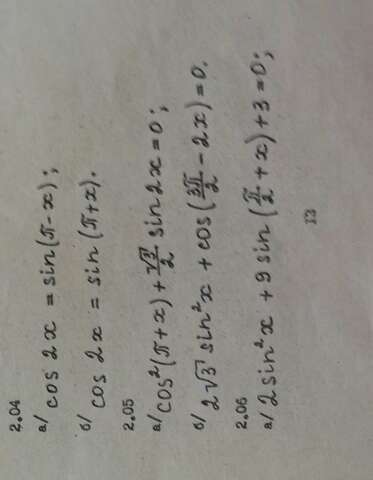 2.04
а/ cos 2x = sin(π-x);
б/ cos 2x = sin (π+x).
2.05
а/ cos²(π+x) + √3/2 sin 2x = 0;
б/ 2√3 sin²x + cos(3π/2 - 2x) = 0.
2.06
а/ 2 sin²x + 9 sin (π/2 + x) + 3 = 0;
13